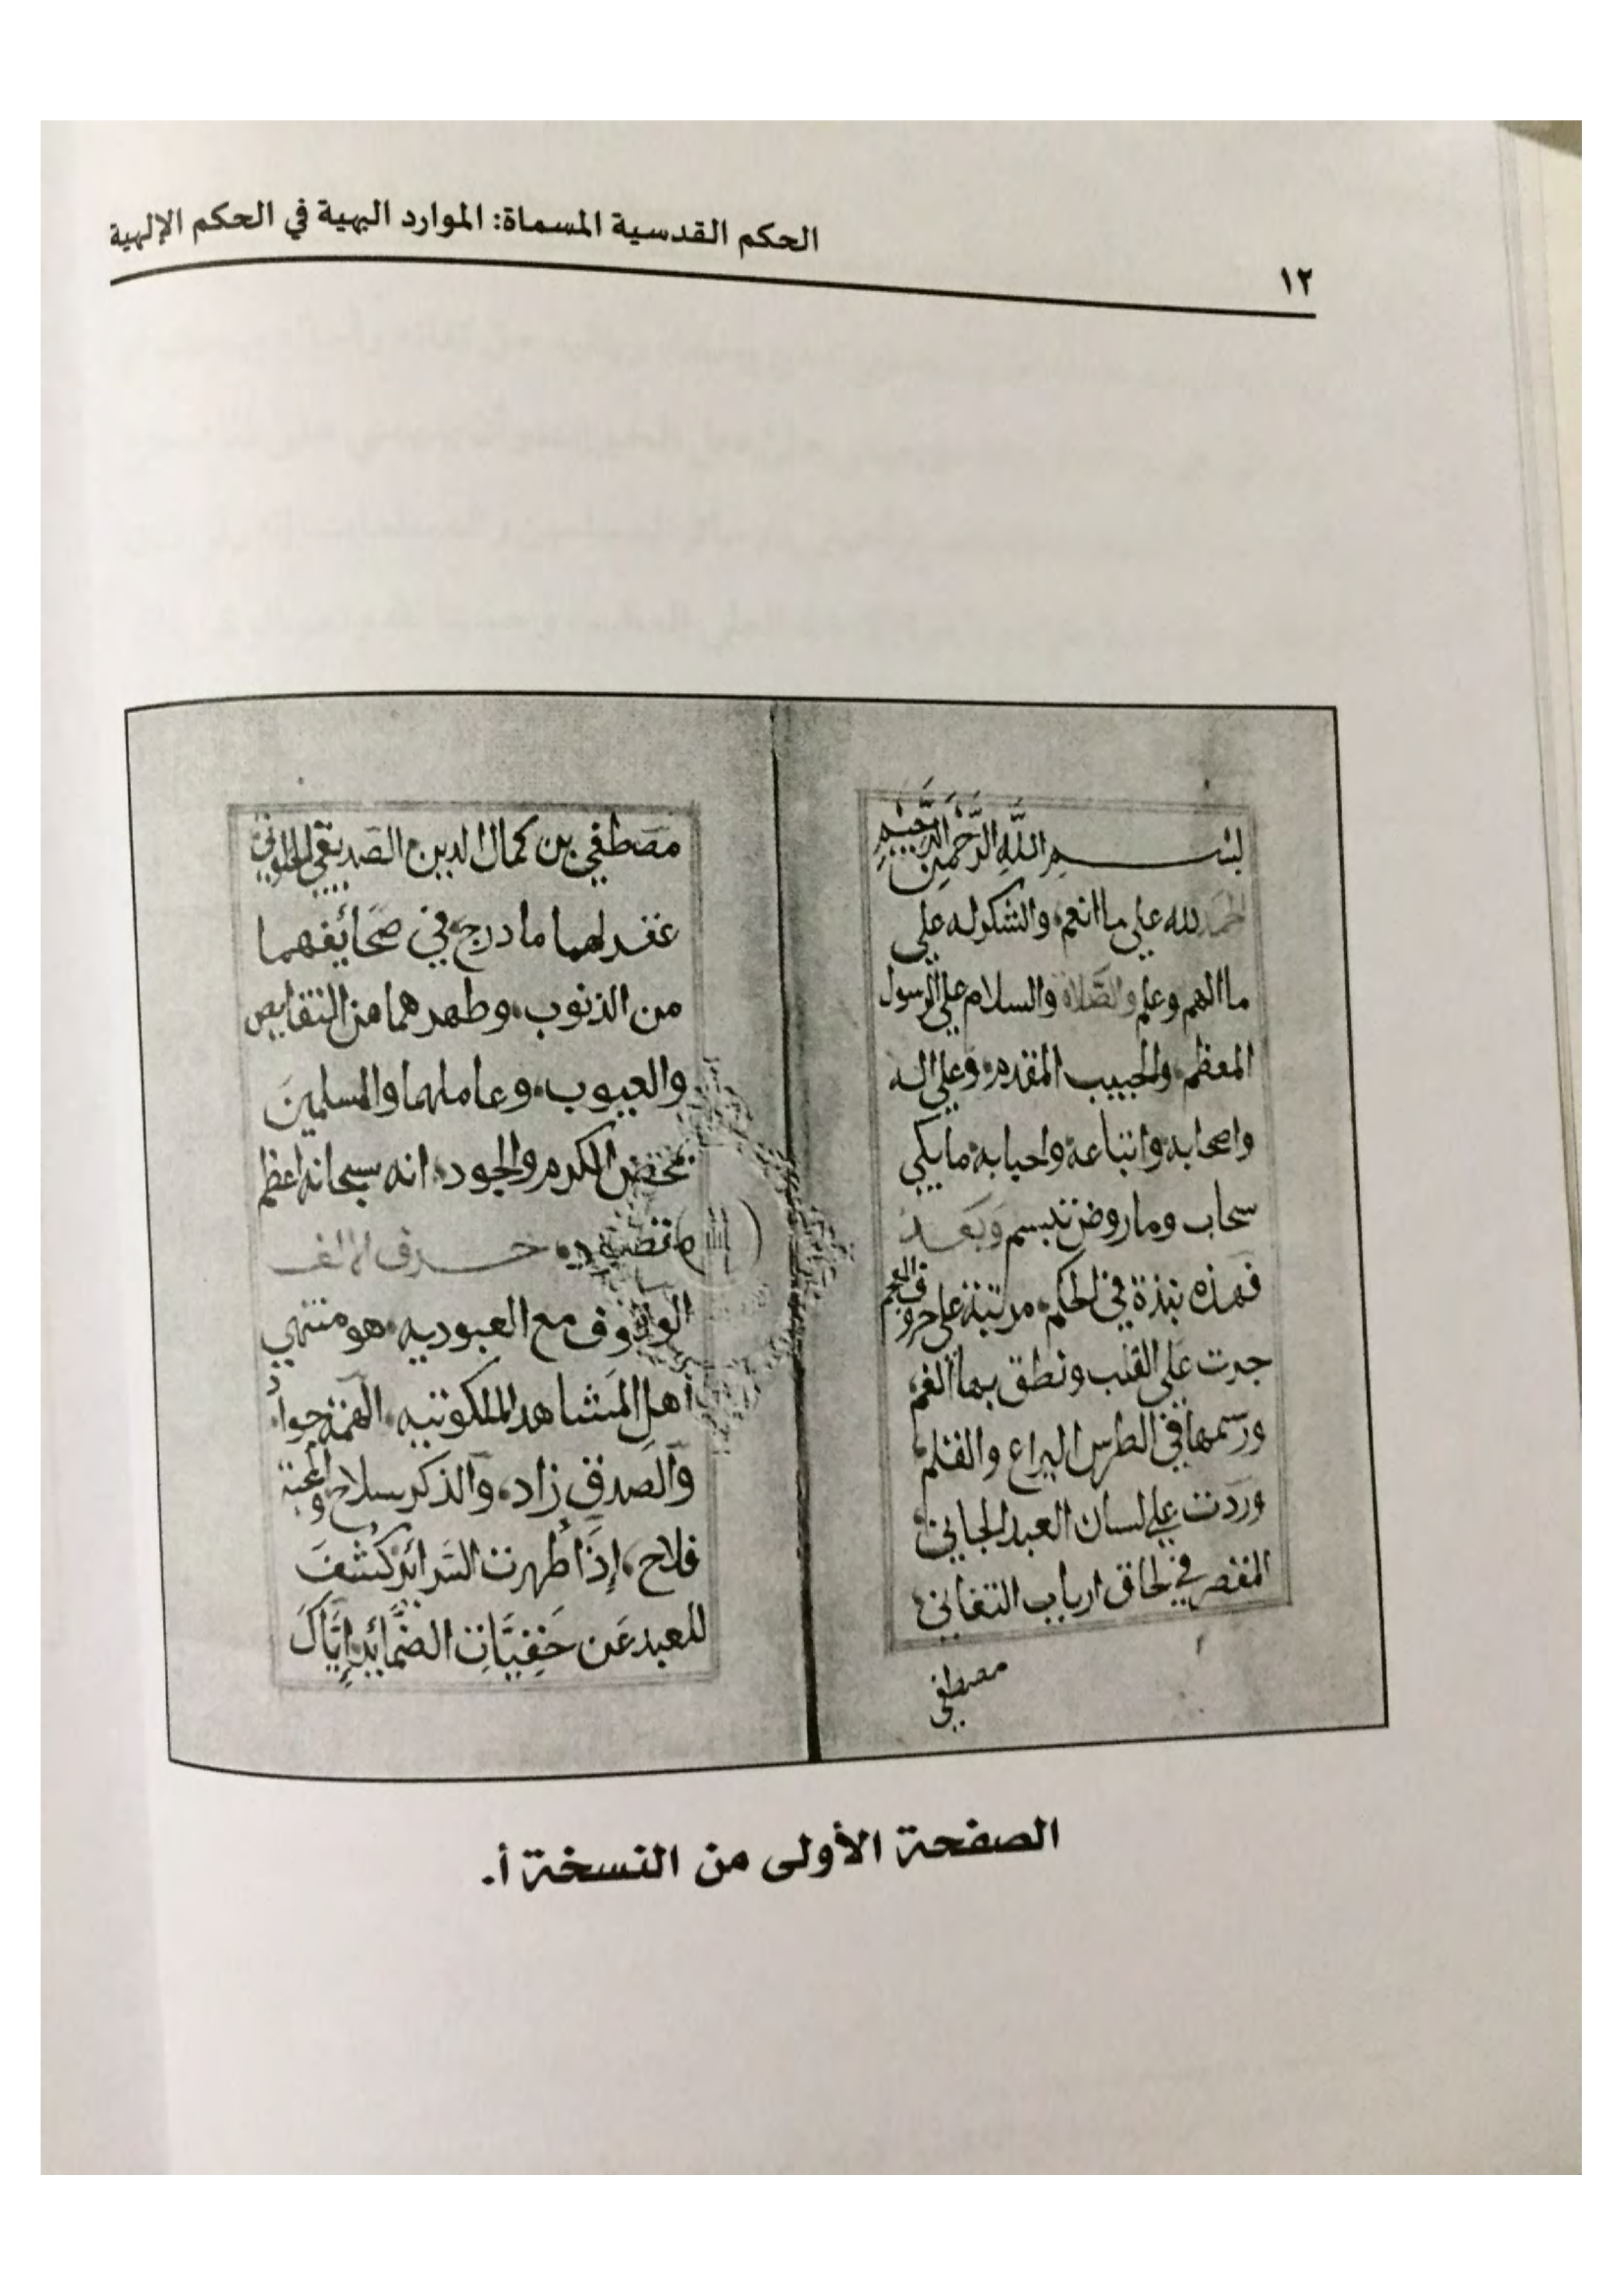 الحكم القدسية المسماة: الموارد البهية في الحكم الإلهية
١٢
بسم الله الرحمن الرحيم
الحمد لله على ما انعم، والشكر له على
ما الهم وعلم والصلاة والسلام على الرسول
المعظم، والحبيب المقدم، وعلى اله
واصحابه واتباعه واحبابه ما بكي
سحاب وما روض تبسم وبعد
فهذه نبذة في الحكم، مرتبة على حروف المعجم
جرت على القلب ونطق بها الفم،
ورسمها في الطرس اليراع والقلم،
وردت على لسان العبد الجاني،
المقصر في لحاق ارباب التفاني،
مصطفى
مصطفى بن كمال الدين الصديقي الخلوتي
غفر لهما ما درج في صحايفهما
من الذنوب، وطهرهما من النقايص
والعيوب، وعاملهما والمسلمين
بمحض الكرم والجود، انه سبحانه اعظم
مقصود، حرف الالف
الوقوف مع العبوديه، هو منتهى
أهل المشاهد الملكوتيه، الهمة جواد،
والصدق زاد، والذكر سلاح، والمحبة
فلاح، إذا طهرت السرائر كشف
للعبد عن خفيات الضمائر، إياك
الصفحة الأولى من النسخة أ.